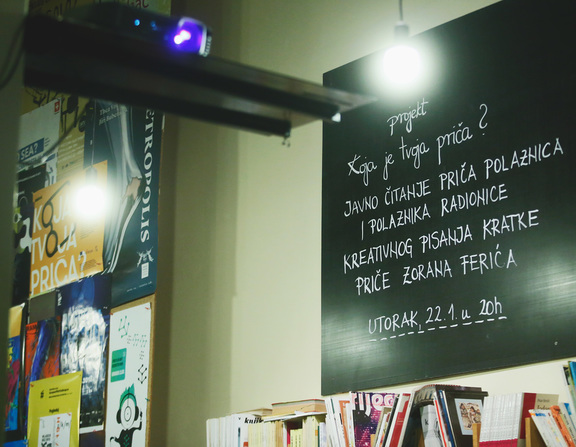 projekt
Koja je tvoja priča?
JAVNO ČITANJE PRIČA POLAZNICA
I POLAZNIKA RADIONICE
KREATIVNOG PISANJA KRATKE
PRIČE ZORANA FERIĆA
UTORAK, 22.1. u 20h
SEA?
METROPOLIS
KOJA JE
TVOJA
PRIČA?